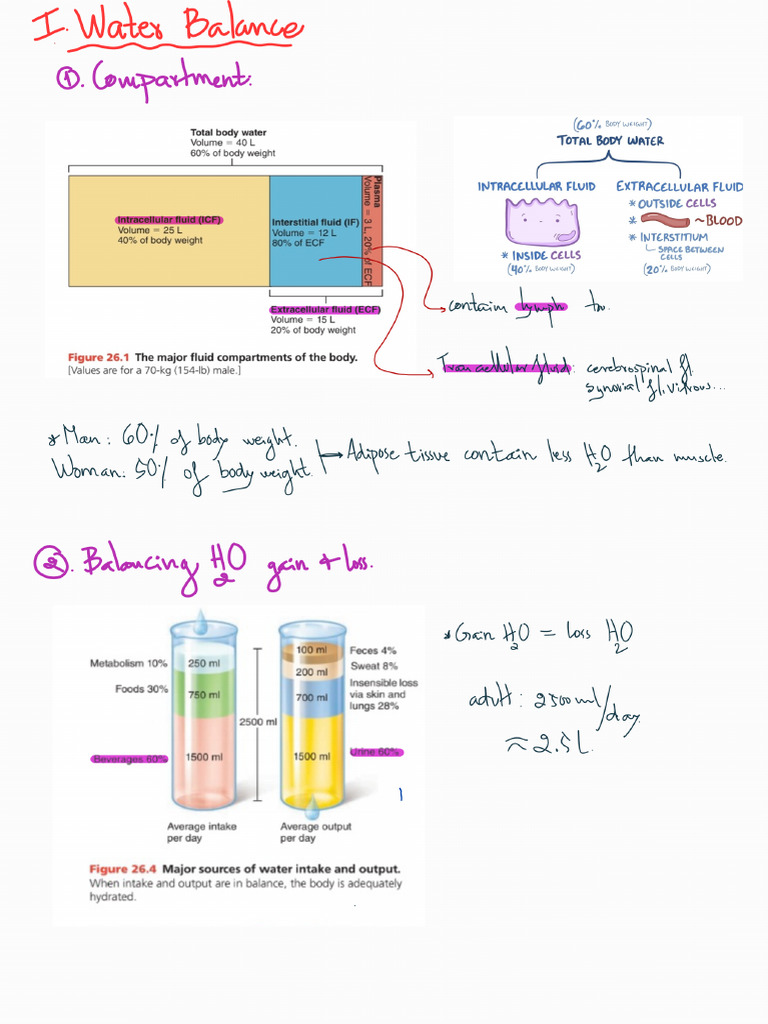 I. Water Balance
①. Compartment:
Total body water
Volume = 40 L
60% of body weight
Intracellular fluid (ICF)
Volume = 25 L
40% of body weight
Interstitial fluid (IF)
Volume = 12 L
80% of ECF
Plasma
Volume = 3 L, 20% of ECF
Extracellular fluid (ECF)
Volume = 15 L
20% of body weight
Figure 26.1 The major fluid compartments of the body.
[Values are for a 70-kg (154-lb) male.]
(60% BODY WEIGHT)
TOTAL BODY WATER
INTRACELLULAR FLUID
* INSIDE CELLS
(40% BODY WEIGHT)
EXTRACELLULAR FLUID
* OUTSIDE CELLS
* ~BLOOD
* INTERSTITIUM
SPACE BETWEEN
CELLS
(20% BODY WEIGHT)
contain lymph
Transcellular fluid: cerebrospinal fl.
synovial fl, vitrous...
* Man: 60% of body weight.
Woman: 50% of body weight.
Adipose tissue contain less H2O than muscle.
②. Balancing H2O gain + loss.
Metabolism 10%
250 ml
Foods 30%
750 ml
Beverages 60%
1500 ml
Average intake
per day
2500 ml
100 ml
Feces 4%
200 ml
Sweat 8%
700 ml
Insensible loss
via skin and
lungs 28%
1500 ml
Urine 60%
Average output
per day
Figure 26.4 Major sources of water intake and output.
When intake and output are in balance, the body is adequately
hydrated.
* Gain H2O = loss H2O
adult: 2500ml/day
≈ 2.5L.